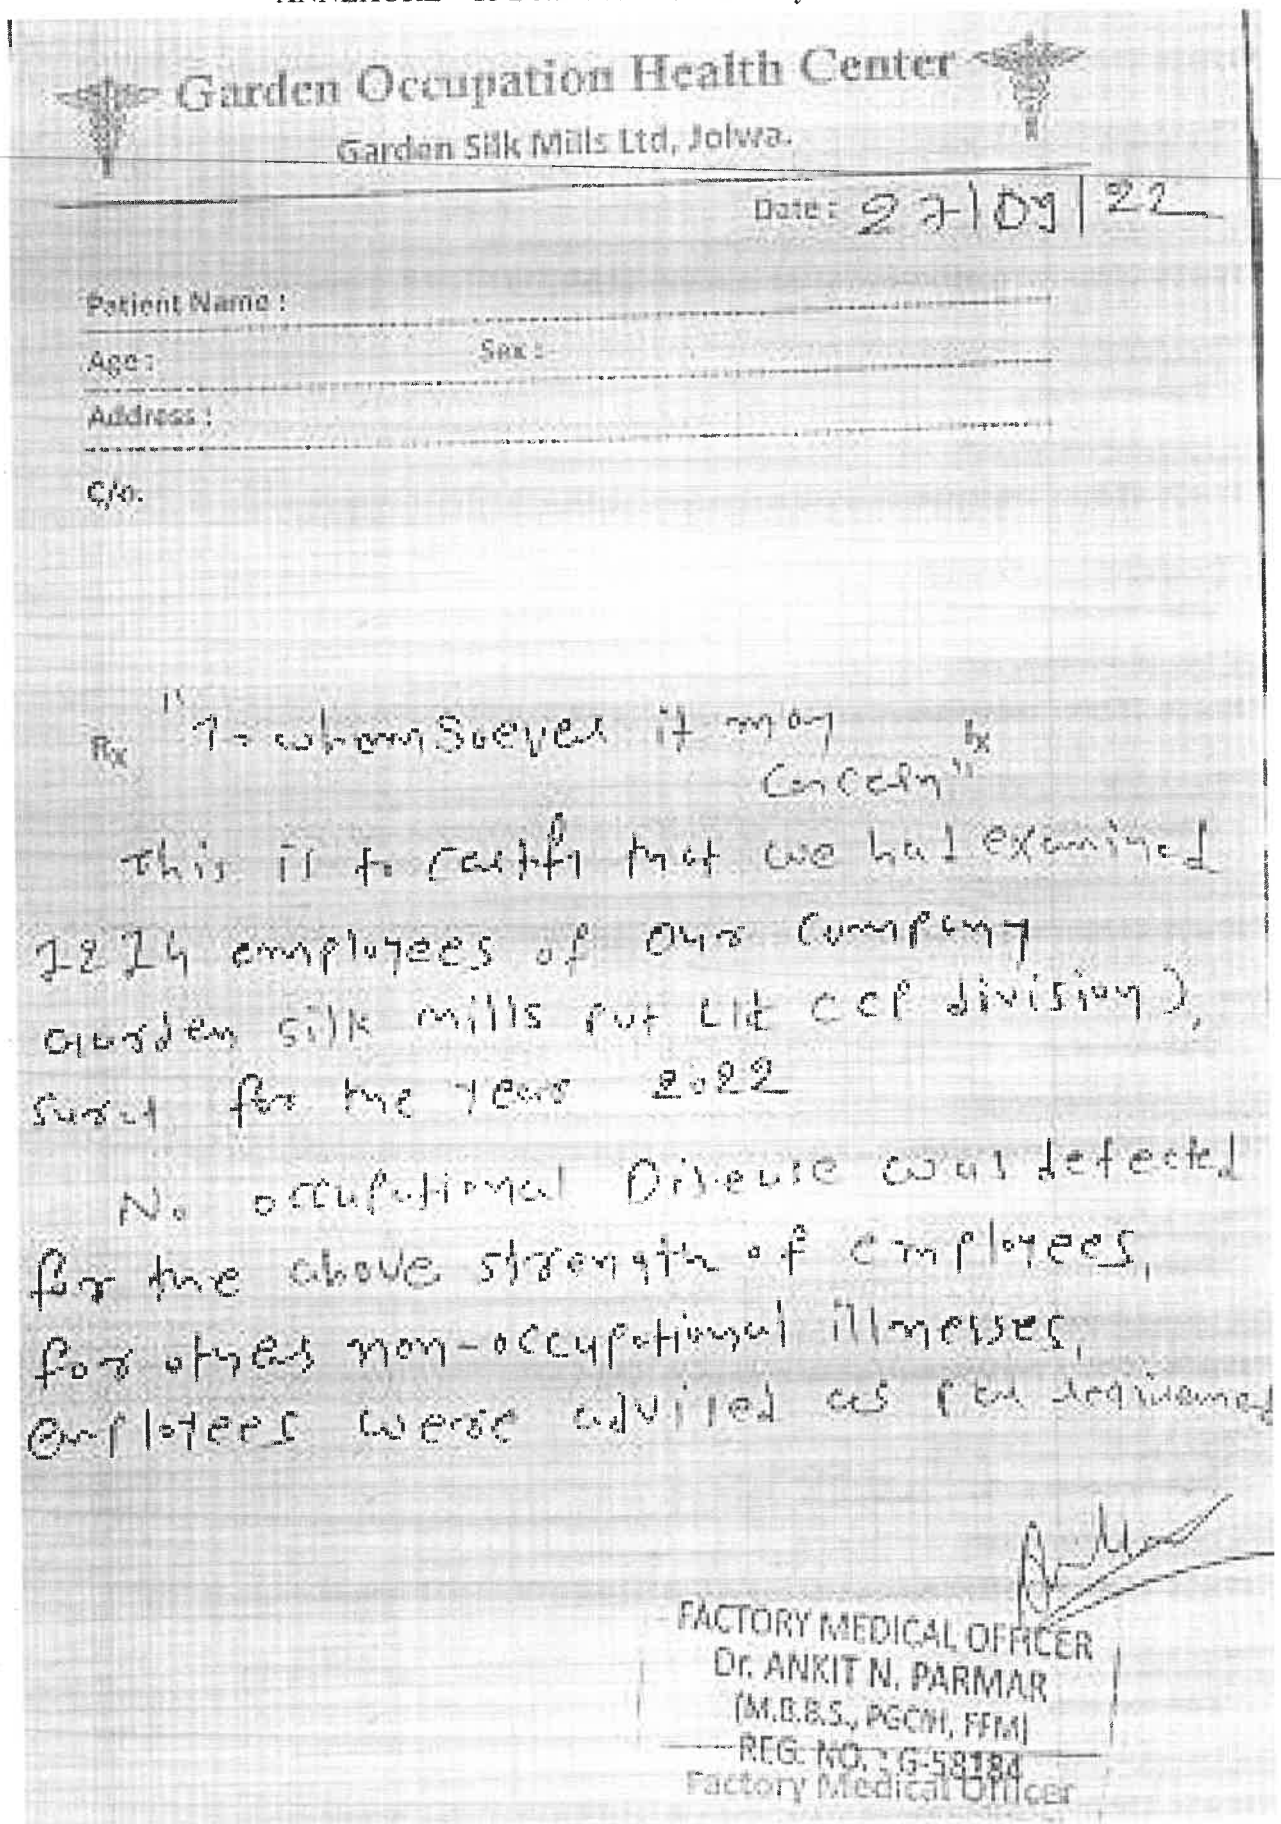 Garden Occupation Health Center
Garden Silk Mills Ltd, Jolwa.
Date : 27/09/22
Patient Name :
Age : Sex :
Address :
C/o.
Rx "To whomsoever it may Rx
concern"
This is to certify that we had examined
employees of our company
Garden silk mills pvt Ltd (CP division),
surat for the year 2022
No occupational Disease was detected
for the above strength of employees,
for others non-occupational illnesses,
employees were advised as per
FACTORY MEDICAL OFFICER
Dr. ANKIT N. PARMAR
(M.B.B.S., PGCIH, FFM)
REG. NO. : G-58184
Factory Medical Officer